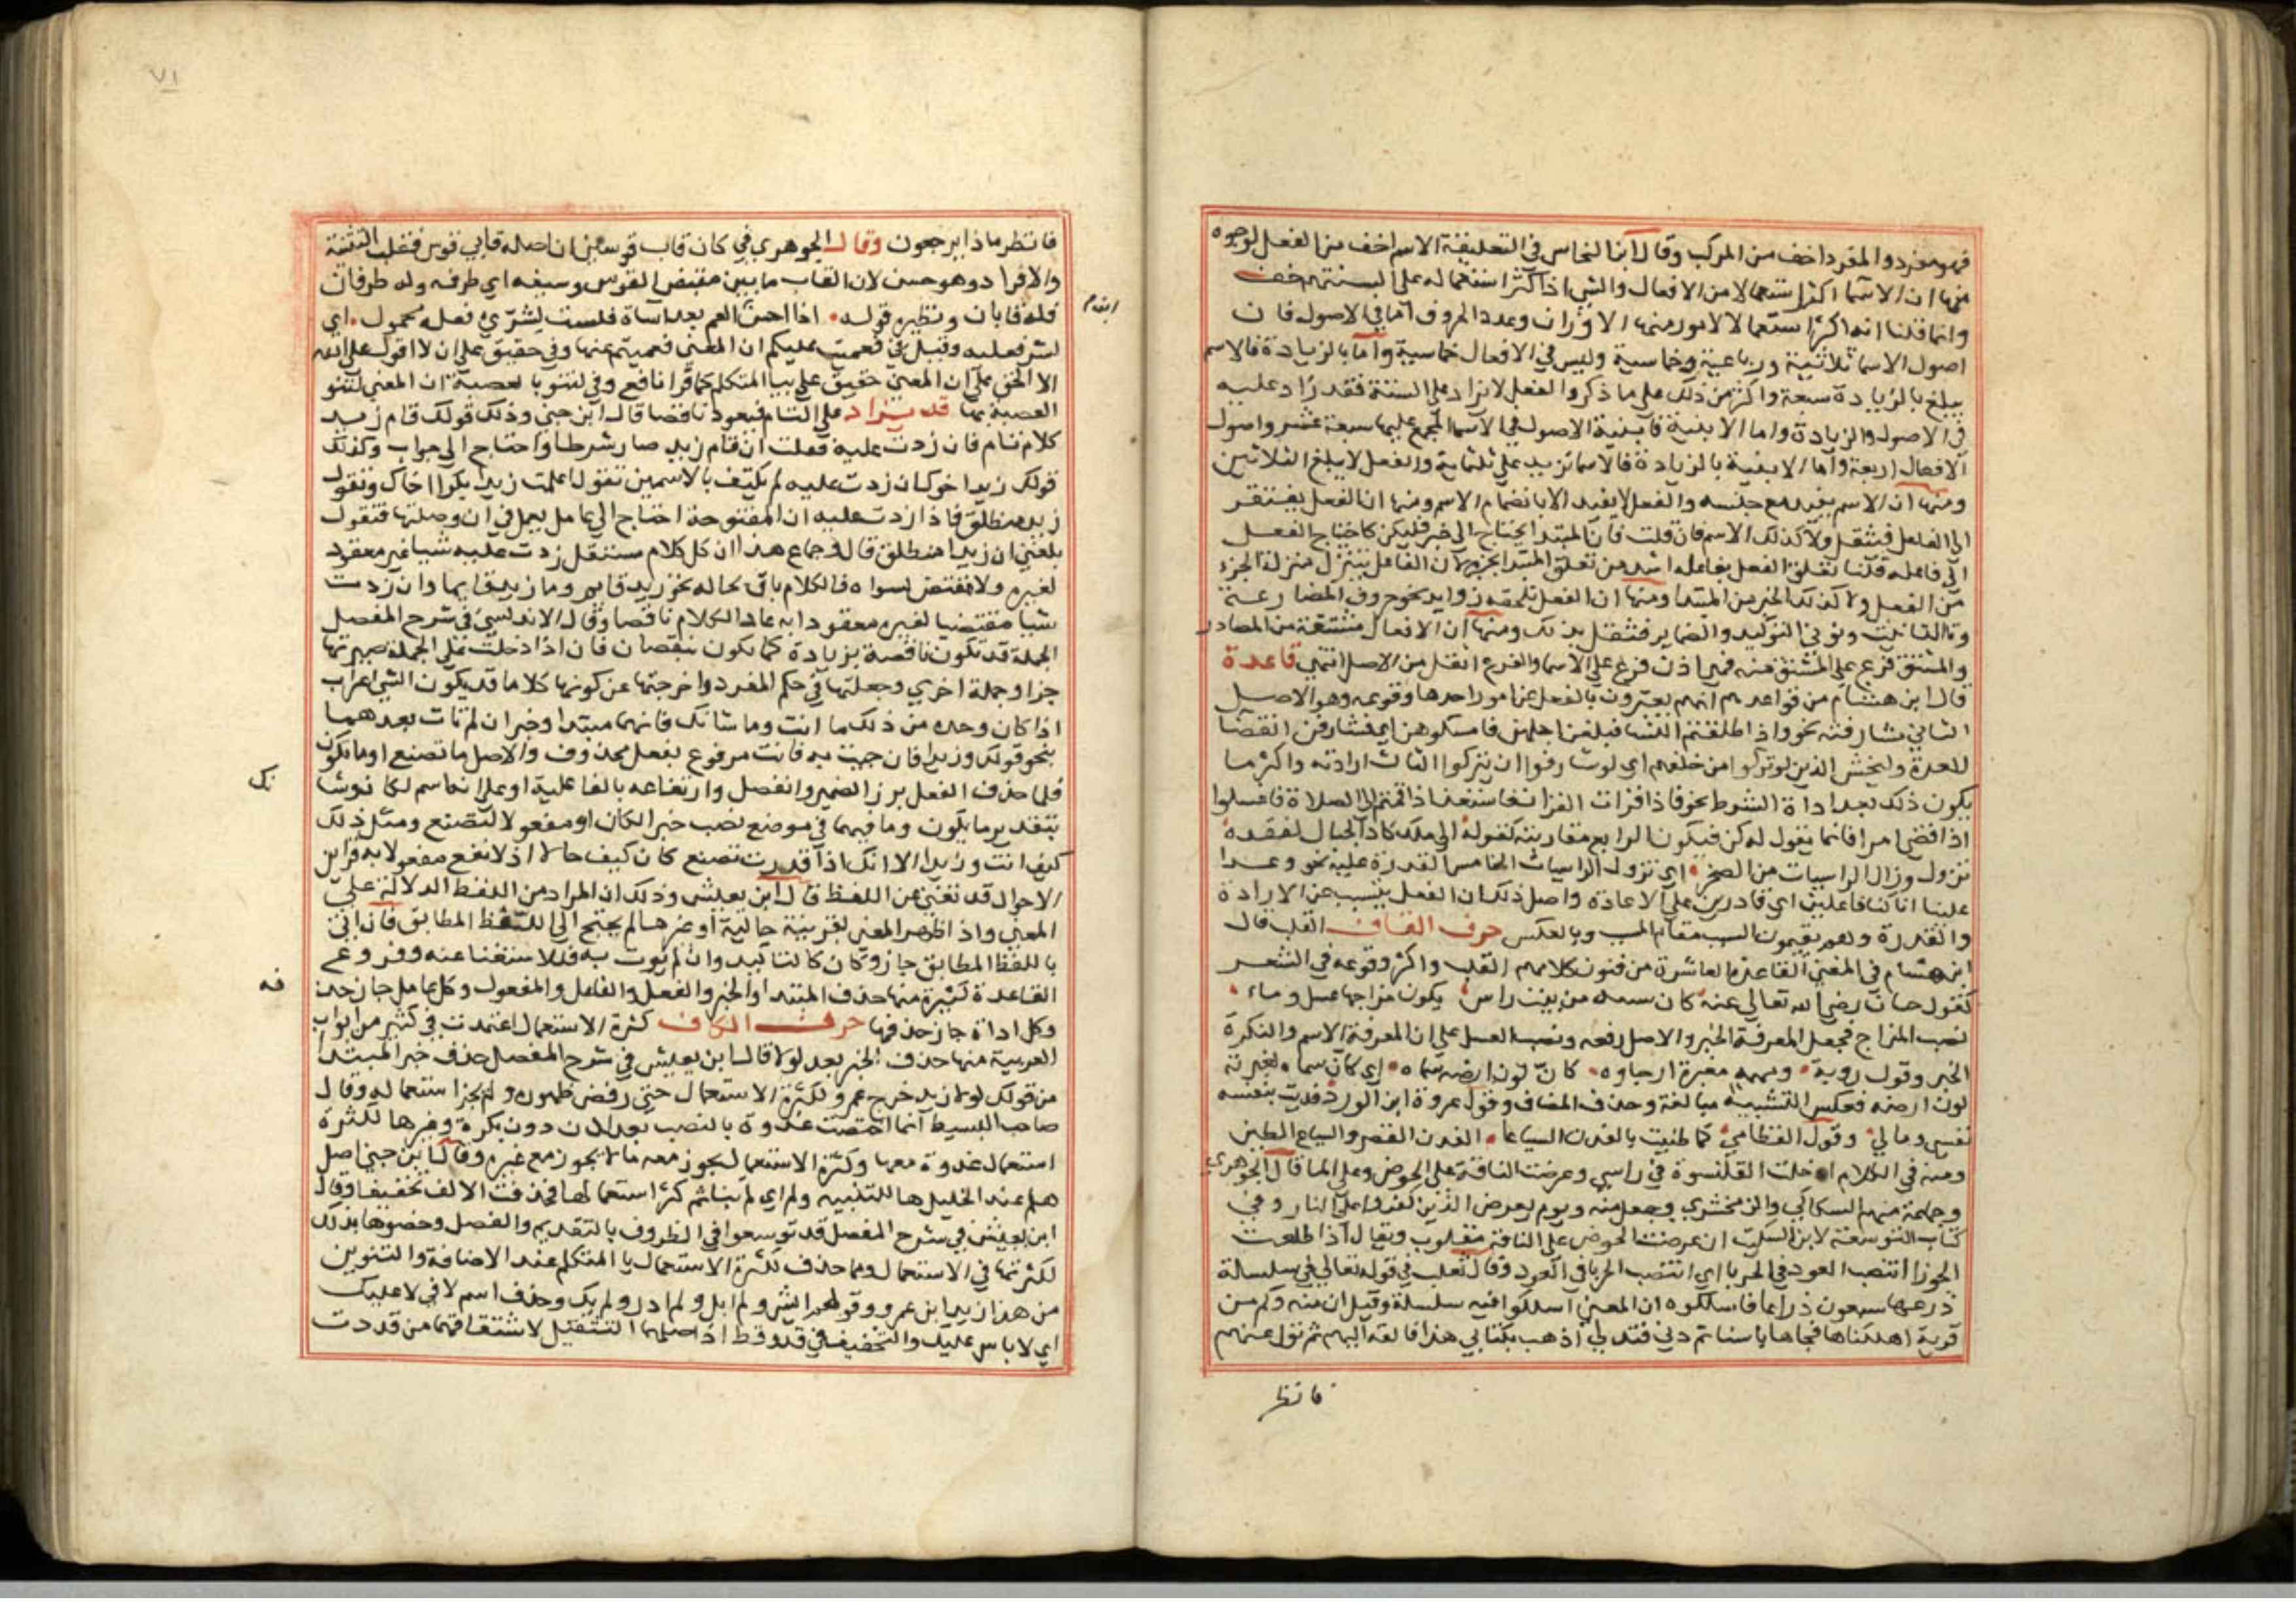 فهو مفرد والمفرد اخف من المركب وقال ابن النحاس في التعليقة الاسم اخف من الفعل لوجوه
منها ان الاسما اكثر استعمالا من الافعال والشي اذا كثر استعماله على السنتهم خف
وانما قلنا انه اكثر استعمالا لامور منها الاوزان وعدد الحروف اما في الاصول فان
اصول الاسما ثلاثية ورباعية وخماسية وليس في الافعال خماسية واما بالزيادة فالاسم
يبلغ بالزيادة سبعة واكثر من ذلك على ما ذكروا الفعل لا يزاد على الستة فقد زاد عليه
في الاصول والزيادة واما الابنية فابنية الاصول في الاسما المجمع عليها تسعة عشر واصول
الافعال اربعة واما الابنية بالزيادة فالاسما تزيد على ثلثماية والفعل لا يبلغ الثلاثين
ومنها ان الاسم يفيد مع جنسه والفعل لا يفيد الا بانضمام الاسم ومنها ان الفعل يفتقر
الى الفاعل فيثقل ولا كذلك الاسم فان قلت فان المبتدا يحتاج الى خبر فليكن كاحتياج الفعل
الى فاعله قلنا تعلق الفعل بفاعله اشد من تعلق المبتدا بخبره لان الفاعل يتنزل منزلة الجزء
من الفعل ولا كذلك الخبر من المبتدا ومنها ان الفعل تلحقه زوايد نحو حروف المضارعة
وتا التانيث ونوني التوكيد والضماير فيثقل بذلك ومنها ان الافعال مشتقة من المصادر
والمشتق فرع على المشتق منه فهي اذن فرع على الاسما والفرع اثقل من الاصل انتهى قاعدة
قال ابن هشام من قواعدهم انهم يعبرون بالفعل عن امور احدها وقوعه وهو الاصل
الثاني مشارفته نحو واذا طلقتم النسا فبلغن اجلهن فامسكوهن اي فشارفن انقضا
العدة وليخش الذين لو تركوا من خلفهم اي لو شارفوا ان يتركوا الثالث ارادته واكثر ما
يكون ذلك بعد اداة الشرط نحو فاذا قرات القران فاستعذ اذا قمتم الى الصلاة فاغسلوا
اذا قضى امرا فانما يقول له كن فيكون الرابع مقاربته كقوله الى ملك كاد الجبال لفقده
تزول وزال الراسيات من الصخر اي تزول الراسيات الخامس القدرة عليه نحو وعدا
علينا انا كنا فاعلين اي قادرين على الاعادة واصل ذلك ان الفعل يتسبب عن الارادة
والقدرة وهم يقيمون السبب مقام المسبب وبالعكس حرف القاف القلب قال
ابن هشام في المغني القاعدة العاشرة من فنون كلامهم القلب واكثر وقوعه في الشعر
كقول حسان رضي الله تعالى عنه كان من بيت راس يكون مزاجها عسل وماء
نصب المزاج فجعل المعرفة الخبر والاصل رفعه ونصب العسل على ان المعرفة الاسم والنكرة
الخبر وقول روبة ومهمه مغبرة ارجاوه كان لون ارضه سماوه اي كان سماه لغبرته
لون ارضه فعكس التشبيه مبالغة وحذف المضاف وقول عروة ابن الورد فديت بنفسه
نفسي ومالي وقول القطامي كما طينت بالفدن السياعا الفدن القصر والسياع الطين
ومنه في الكلام ادخلت القلنسوة في راسي وعرضت الناقة على الحوض وعلى الما قال الجوهري
وجماعة منهم السكاكي والزمخشري وجعل منه ويوم يعرض الذين كفروا على النار وفي
كتاب التوسعة لابن السكيت ان عرضت الحوض على الناقة مقلوب ويقال اذا طلعت
الجوزا انتصب العود في الحربا اي انتصب الحربا في العود وقال ثعلب في قوله تعالى في سلسلة
ذرعها سبعون ذراعا فاسلكوه ان المعنى اسلكوا فيه سلسلة وقيل ان منه وكم من
قرية اهلكناها فجاها باسنا ثم دنى فتدلى اذهب بكتابي هذا فالقه اليهم ثم تول عنهم
فانظر
٧١
فانظر ماذا يرجعون وقال الجوهري في كان قاب قوسين ان اصله قابي قوس فقلب التثنية
والافراد وهو حسن لان القاب ما بين مقبض القوس وسيفه اي طرفه وله طرفان
فله قابان ونظيره قوله اذا احسن ابن العم بعد اساة فلست لشري فعله بحمول اي
لشر فعليه وقيل في فعميت عليكم ان المعنى فعميتم عنها وفي حقيق على ان لا اقول على الله
الا الحق على ان المعنى حقيق علي بيا المتكلم كما قرا نافع وفي لتنو بالعصبة ان المعنى لتنو
العصبة بها قد يزاد على التام فيعود ناقصا قال ابن جني وذلك قولك قام زيد
كلام تام فان زدت عليه فقلت ان قام زيد صار شرطا واحتاج الى جواب وكذلك
قولك زيد اخوك ان زدت عليه لم يكتف بالاسمين تقول اعلمت زيدا بكرا اخاك وتقول
زيد منطلق فاذا زدت عليه ان المفتوحة احتاج الى عامل يعمل في ان وصلتها فتقول
بلغني ان زيدا منطلق قال وجماع هذا ان كل كلام مستقل زدت عليه شيا غير معقود
لغيره ولا مقتض لسواه فالكلام باق بحاله نحو زيد قايم وما زيد قايما وان زدت
شيا مقتضيا لغيره معقودا به عاد الكلام ناقصا وقال الاندلسي في شرح المفصل
الجملة قد تكون ناقصة بزيادة كما تكون بنقصان فان اذا دخلت على الجملة صيرتها
جزا وجملة اخرى وجعلتها في حكم المفرد واخرجتها عن كونها كلاما قد يكون الشي اعراب
اذا كان وحده من ذلك ما انت وما شانك فانهما مبتدا وخبر ان لم تات بعدهما
بنحو قولك وزيدا فان جيت به فانت مرفوع بفعل محذوف والاصل ما تصنع او ما تكون
فلما حذف الفعل برز الضمير وانفصل وارتفاعه بالفاعلية او على انه اسم لكان وشانك
بتقدير ما يكون وما فيهما في موضع نصب خبر الكان او مفعولا لتصنع ومثل ذلك
كيف انت وزيدا الا انك اذا قدرت تصنع كان كيف حالا اذ لا تقع مفعولا به قراين
الاحوال قد تغني عن اللفظ قال ابن يعيش وذلك ان المراد من اللفظ الدلالة على
المعنى واذا ظهر المعنى بقرينة حالية او غيرها لم يحتج الى اللفظ المطابق فان اتى
باللفظ المطابق جاز وكان كالتاكيد وان لم يوت به فللاستغنا عنه وفروع
القاعدة كثيرة منها حذف المبتدا والخبر والفعل والفاعل والمفعول وكل عامل جاز حذفه
وكل اداة جاز حذفها حرف الكاف كثرة الاستعمال اعتمدت في كثير من ابواب
العربية منها حذف الخبر بعد لولا قال ابن يعيش في شرح المفصل حذف خبر المبتدا
من قولك لولا زيد خرج عمرو لكثرة الاستعمال حتى رفض ظهوره ولم يجز استعماله وقال
صاحب البسيط انما اختصت غدوة بالنصب بعد لدن دون بكرة وغيرها لكثرة
استعمال غدوة معها وكثرة الاستعمال يجوز معه ما لا يجوز مع غيره وقال ابن جني اصل
هلم عند الخليل ها للتنبيه ولم اي لم بنا ثم كثر استعمالها فحذفت الالف تخفيفا وقال
ابن يعيش في شرح المفصل قد توسعوا في الظروف بالتقديم والفصل وخصوها بذلك
لكثرتها في الاستعمال ومما حذف لكثرة الاستعمال يا المتكلم عند الاضافة والتنوين
من هذا زيد ابن عمرو وقولهم ايش ولم ابل ولم ادر ولم يك وحذف اسم لا في لا عليك
اي لا باس عليك والتخفيف في قد وقط اذ اصلهما التثقيل لاشتقاقهما من قددت